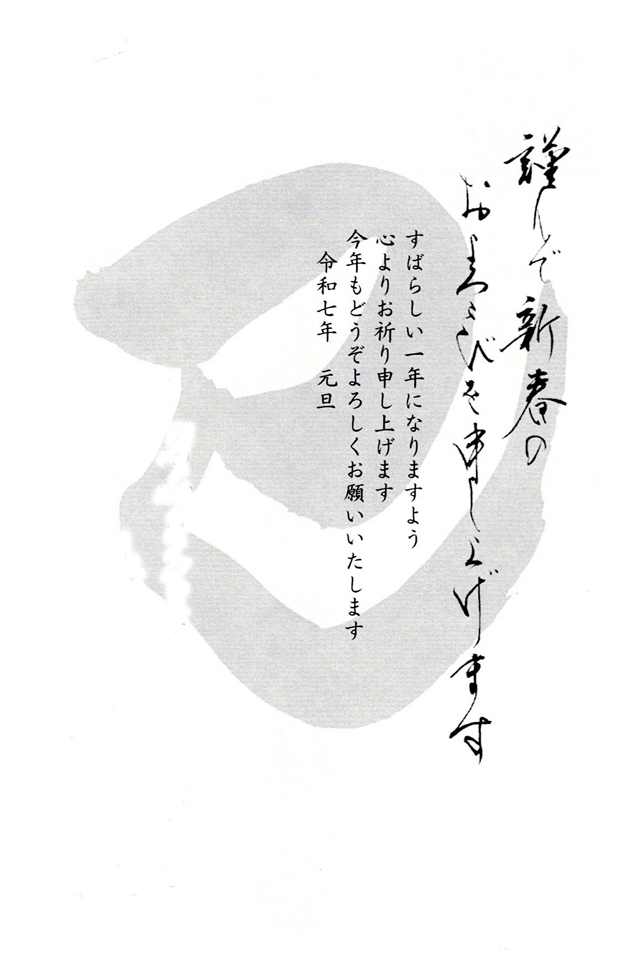 謹んで新春の
およろこびを申し上げます
すばらしい一年になりますよう
心よりお祈り申し上げます
今年もどうぞよろしくお願いいたします
令和七年　元旦